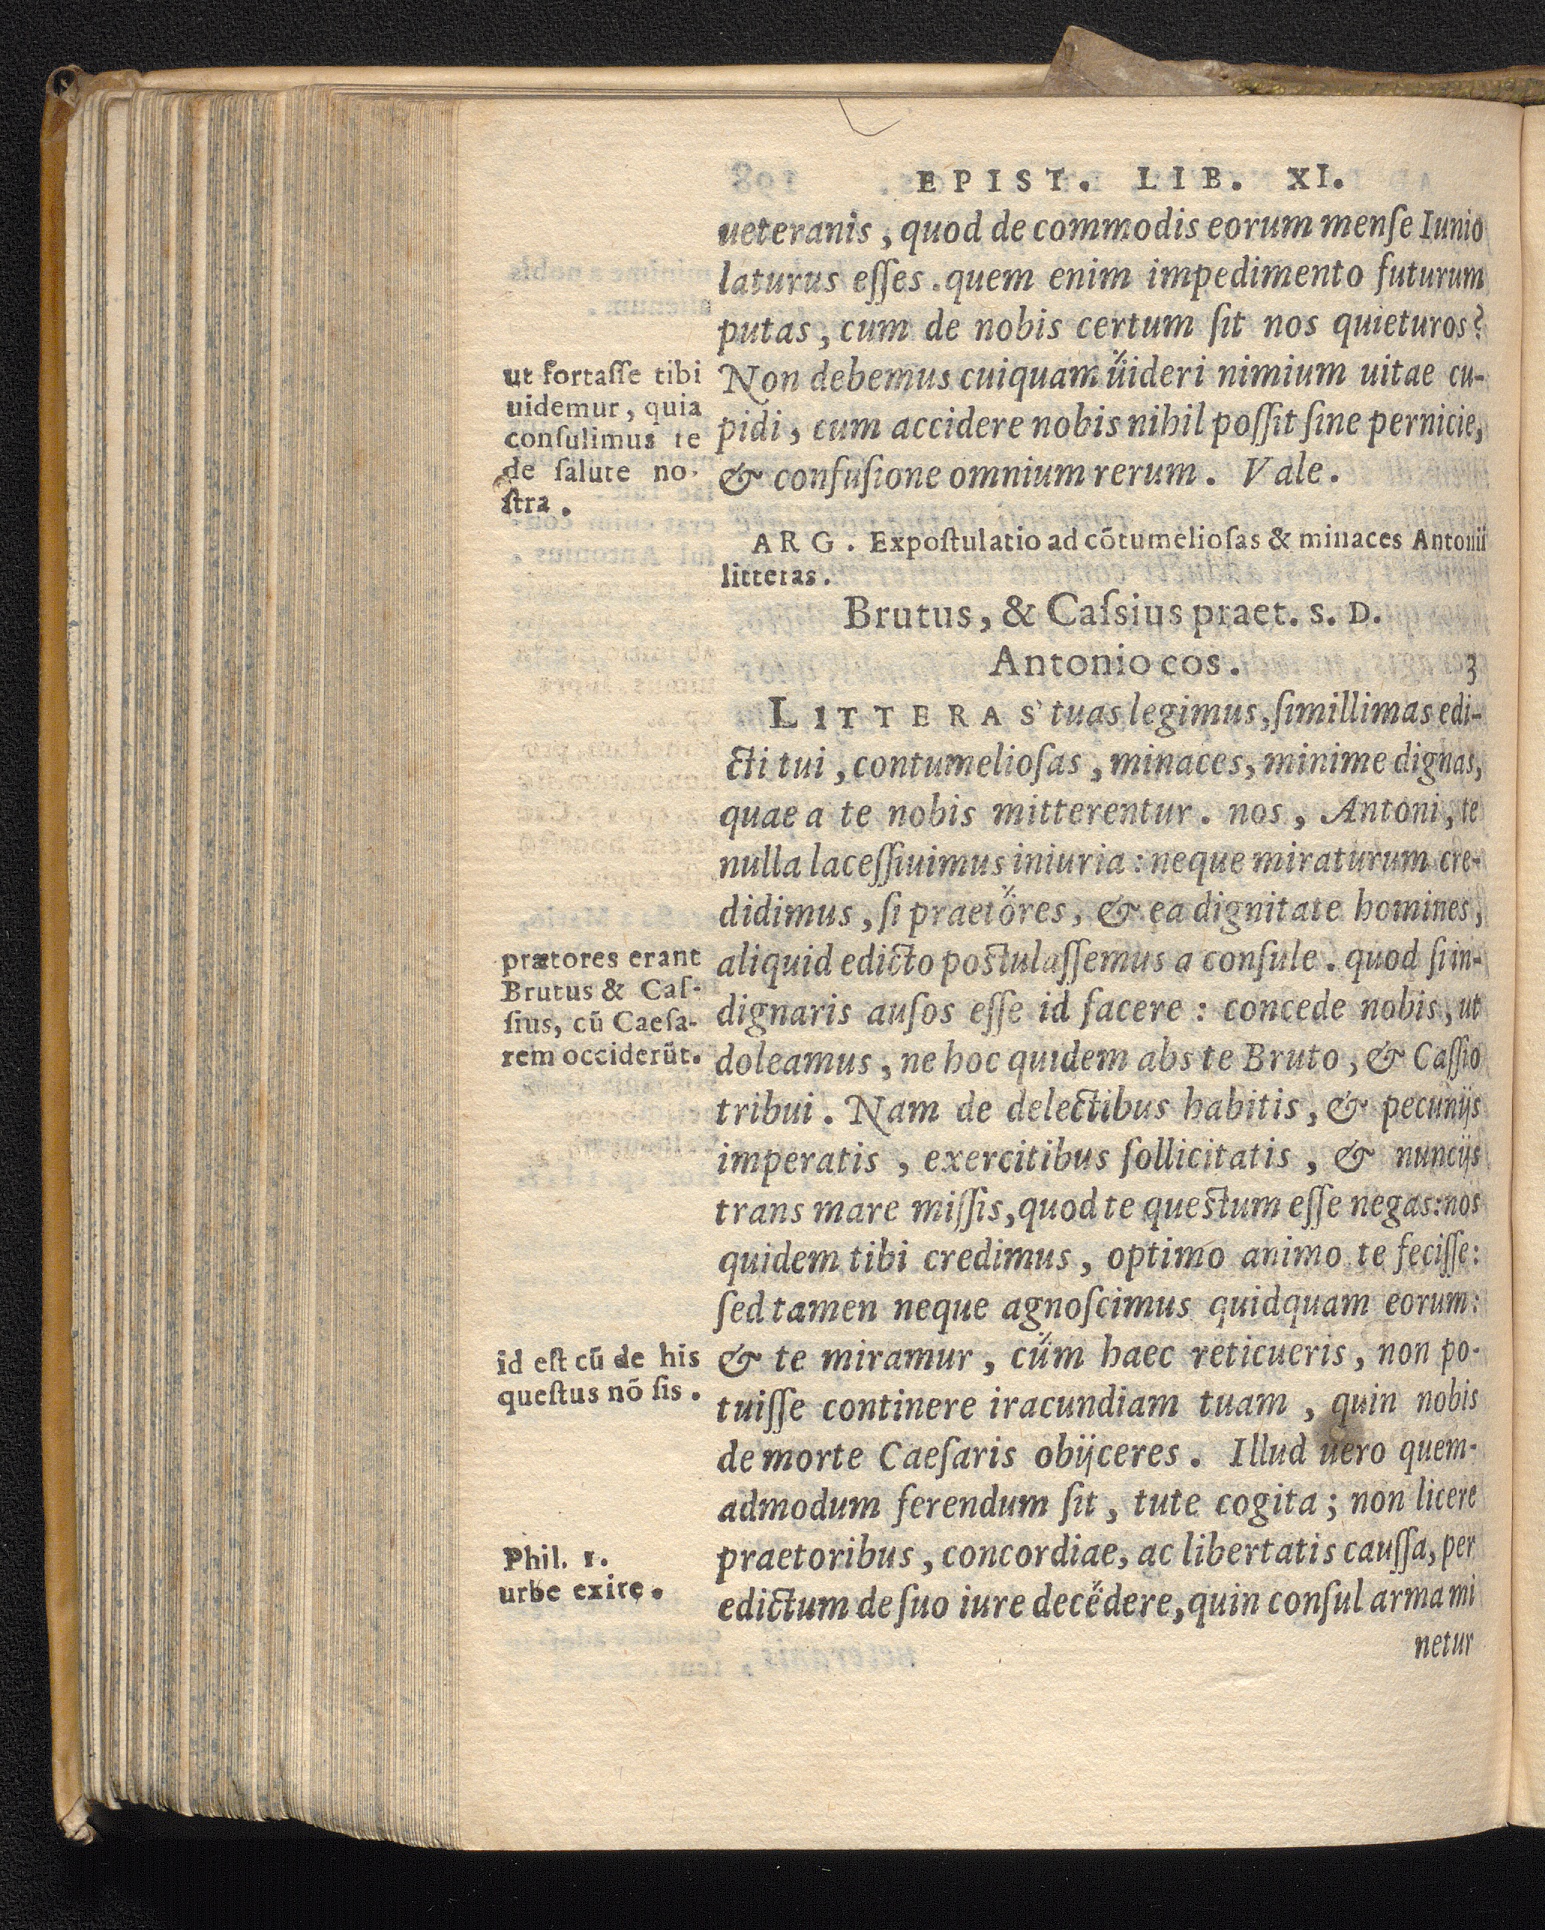 EPIST. LIB. XI.
ueteranis, quod de commodis eorum menſe Iunio
laturus eſſes. quem enim impedimento futurum
putas, cum de nobis certum ſit nos quieturos?
Non debemus cuiquam uideri nimium uitae cu-
pidi, cum accidere nobis nihil poſſit ſine pernicie,
& confuſione omnium rerum. Vale.
ut fortaſſe tibi
uidemur, quia
conſulimus te
de ſalute no-
ſtra.
ARG. Expoſtulatio ad cõtumelioſas & minaces Antonii
litteras.
Brutus, & Caſsius praet. S. D.
Antonio cos. 3
LITTERAS tuas legimus, ſimillimas edi-
cti tui, contumelioſas, minaces, minime dignas,
quae a te nobis mitterentur. nos, Antoni, te
nulla laceſſiuimus iniuria: neque miraturum cre-
didimus, ſi praetores, & ea dignitate homines,
aliquid edicto poſtulaſſemus a conſule. quod ſi in-
dignaris auſos eſſe id facere: concede nobis, ut
doleamus, ne hoc quidem abs te Bruto, & Caſſio
tribui. Nam de delectibus habitis, & pecunijs
imperatis, exercitibus ſollicitatis, & nuncijs
trans mare miſſis, quod te queſtum eſſe negas: nos
quidem tibi credimus, optimo animo te feciſſe:
ſed tamen neque agnoſcimus quidquam eorum:
& te miramur, cum haec reticueris, non po-
tuiſſe continere iracundiam tuam, quin nobis
de morte Caeſaris obijceres. Illud uero quem-
admodum ferendum ſit, tute cogita; non licere
praetoribus, concordiae, ac libertatis cauſſa, per
edictum de ſuo iure decedere, quin conſul arma mi
netur
prætores erant
Brutus & Caſ-
ſius, cũ Caeſa-
rem occiderũt.
id eſt cũ de his
queſtus nõ ſis.
Phil. 1.
urbe exire.